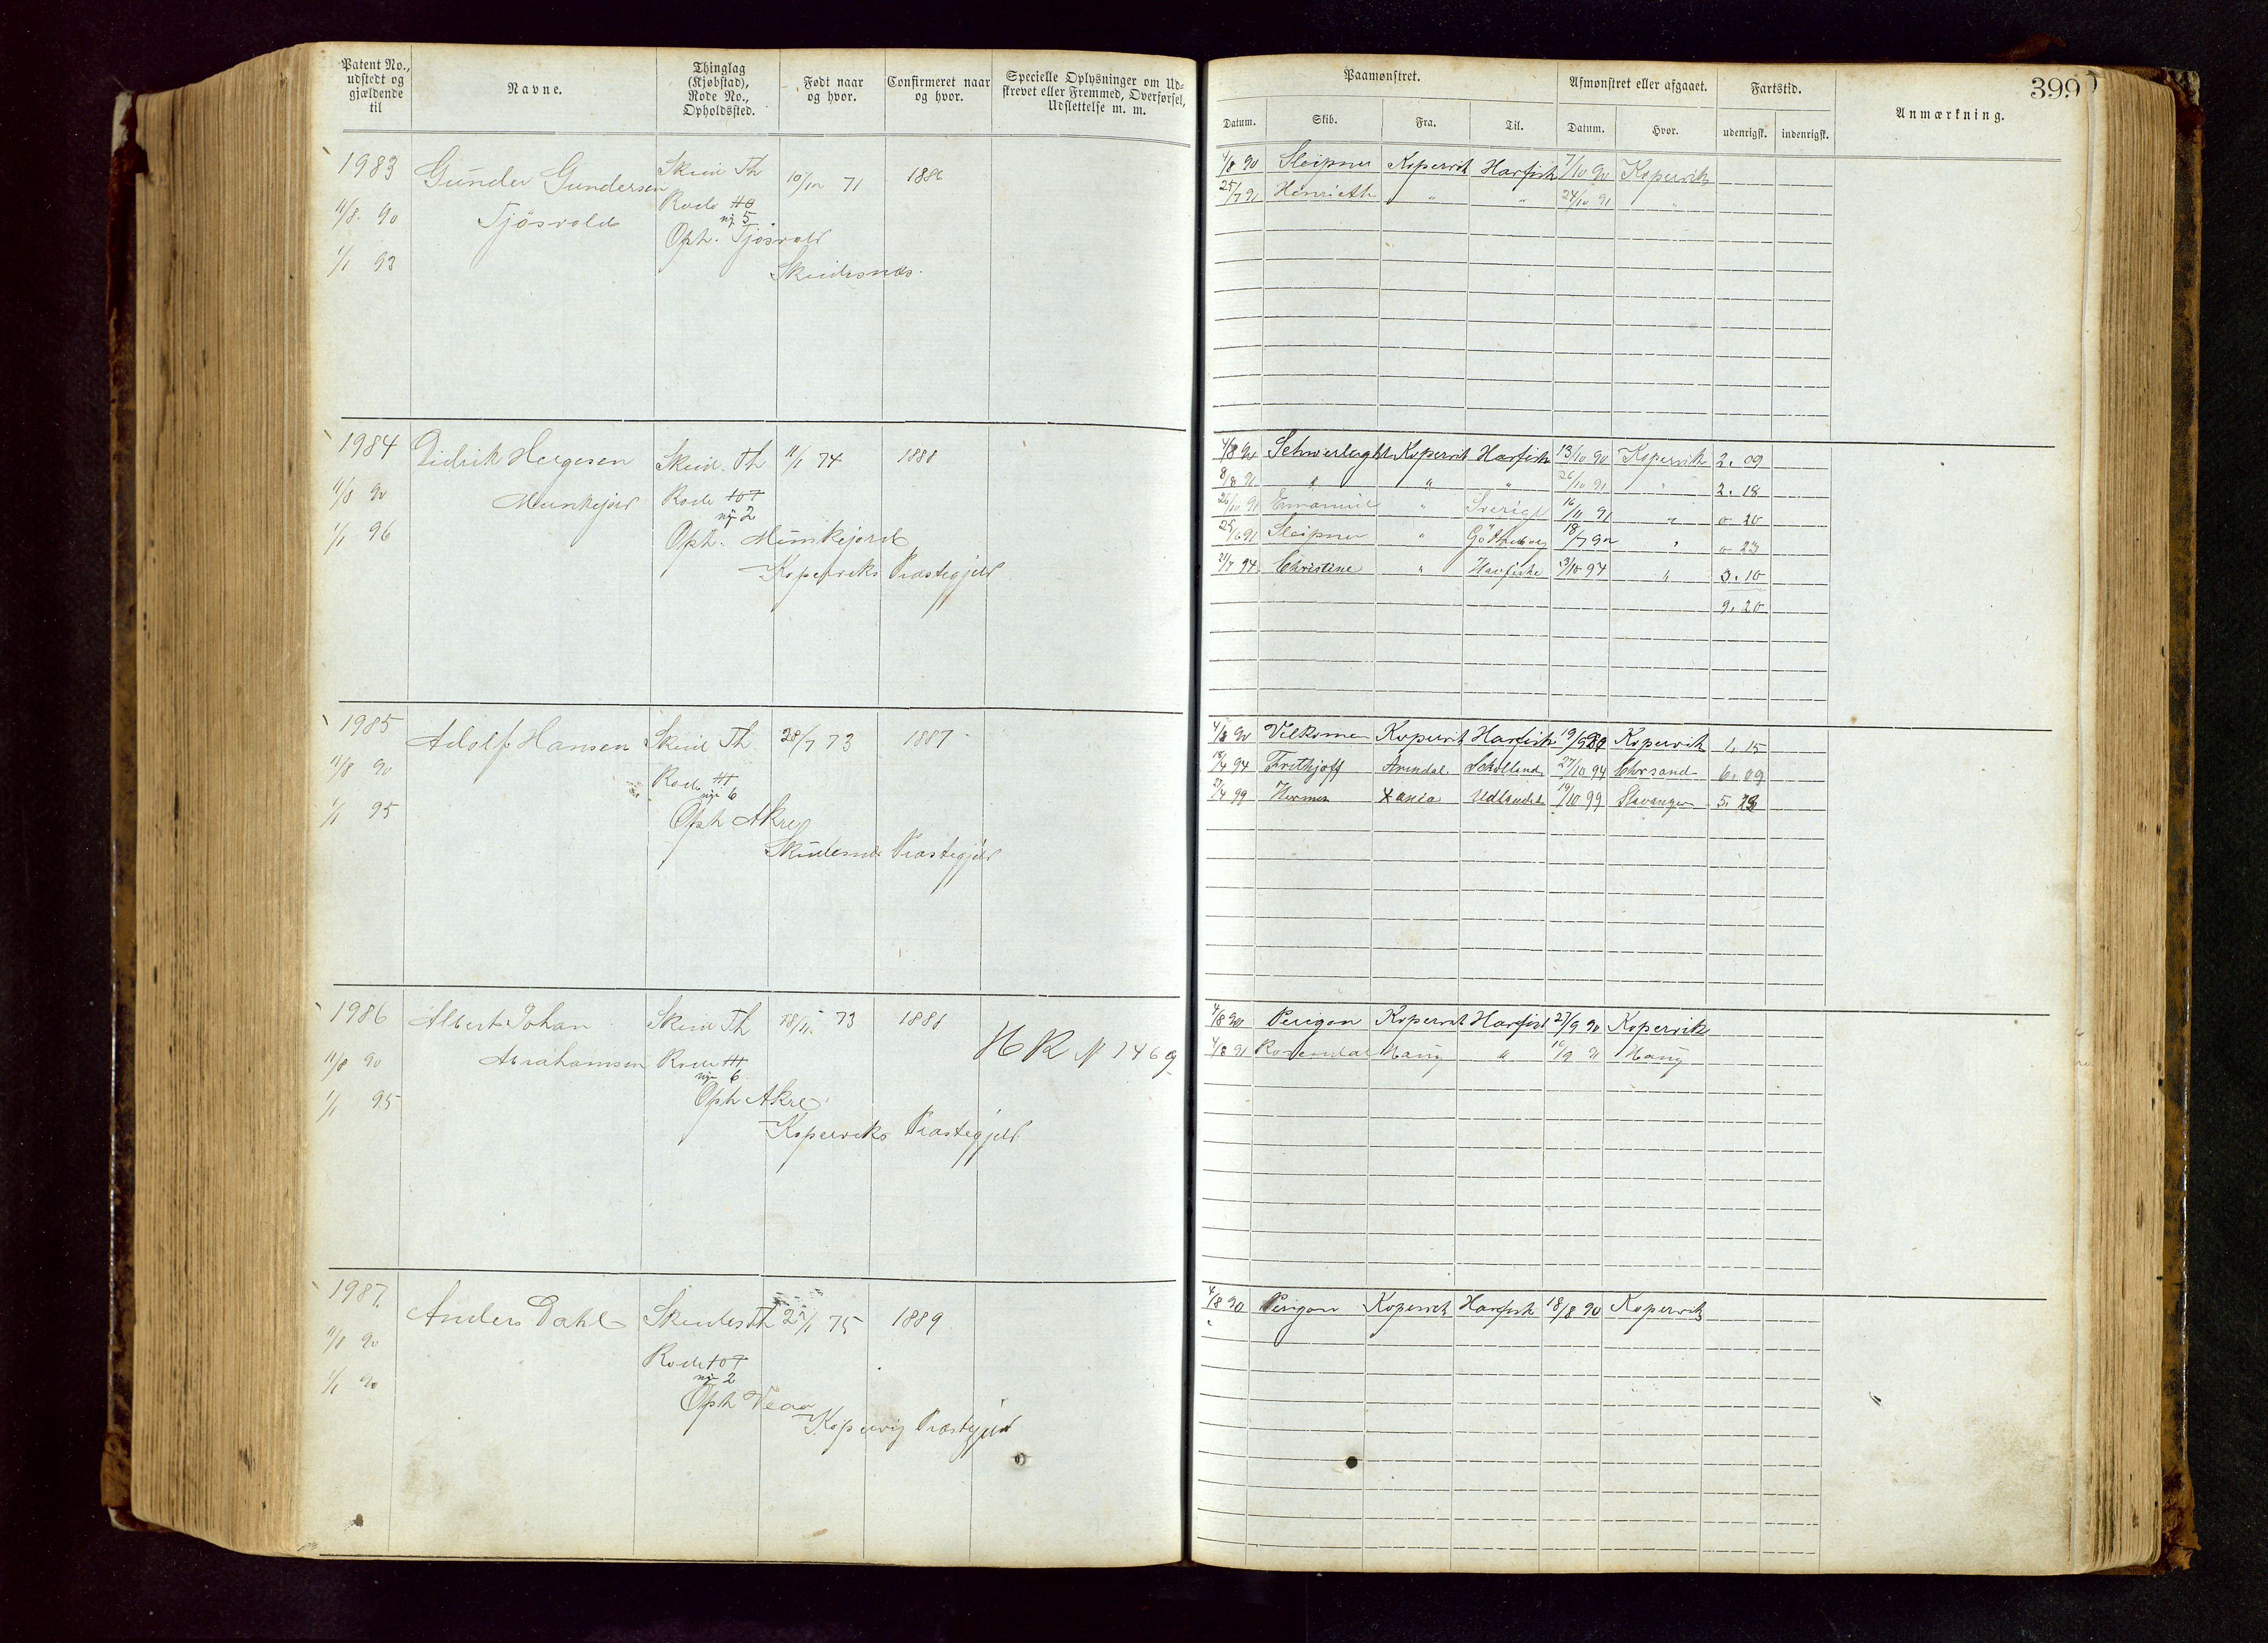 Patent No., udstedt og gjældende til
Navne.
Thinglag (Kjøbstad), Rode No., Opholdssted.
Født naar og hvor.
Confirmeret naar og hvor.
Specielle Oplysninger om Udskrevet eller Fremmed, Overførsel, Udslettelse m. m.
Paamønstret.
Afmønstret eller afgaaet.
Fartstid.
Anmærkning.
399
Datum. Skib. Fra. Til. Datum. Hvor. udenrigsk. indenrigsk.
1983 Gunder Gundersen Skud Th 10/12 71 1886
11/8 90 Tjösvold Rode 10
ny 5
Oph. Tjösvold
1/1 93 Skudesnæs
4/8 90 Sleipner Kopervik Havfisk 7/10 90 Kopervik
25/7 91 Henrieth " " 24/10 91 "
1984 Didrik Helgesen Skud. Th 11/1 74 1888
11/8 90 Munkejord Rode 107
ny 2
1/1 96 Oph. Munkejord
Koperviks Præstegjeld
4/8 90 Kopervik Havfisk 13/10 90 Kopervik 2. 09
8/8 91 " " " 26/10 91 " 2. 18
26/10 91 Emanuel " Sverige 16/11 91 " 0 20
25/6 91 Sleipner " Götheborg 18/7 92 " 0 23
21/7 94 Christine " Havfiske 31/10 94 " 3. 10
9. 20
1985 Adolf Hansen Skud Th 28/7 73 1887
11/8 90 Rode 111
ny 6
1/1 95 Oph Akre
Skudesnæs Præstegjeld
4/8 90 Velkomen Kopervik Havfisk 19/9 90 Kopervik 1. 15
18/4 94 Frithjoff Arendal. Skotland 27/10 94 Chrsand 6. 09
27/4 99 Hermes Xania Udlandet 19/10 99 Stavanger 5. 23
1986 Albert Johan Skud Th 18/11 73 1888
H R N 1469
11/8 90 Abrahamsen Rode 111
ny 6
1/1 95 Oph Akre
Koperviks Præstegjeld
4/8 90 Perigon Kopervik Havfisk 27/9 90 Kopervik
4/8 91 Rosendal Haug " 16/9 91 Haug
1987. Anders Dahl Skudes Th 27/1 75 1889
11/8 90 Rode 107
ny 2
1/1 90 Oph Veaa
Kopervig Præstegjeld
4/8 90 Perigon Kopervik Havfisk 18/8 90 Kopervik